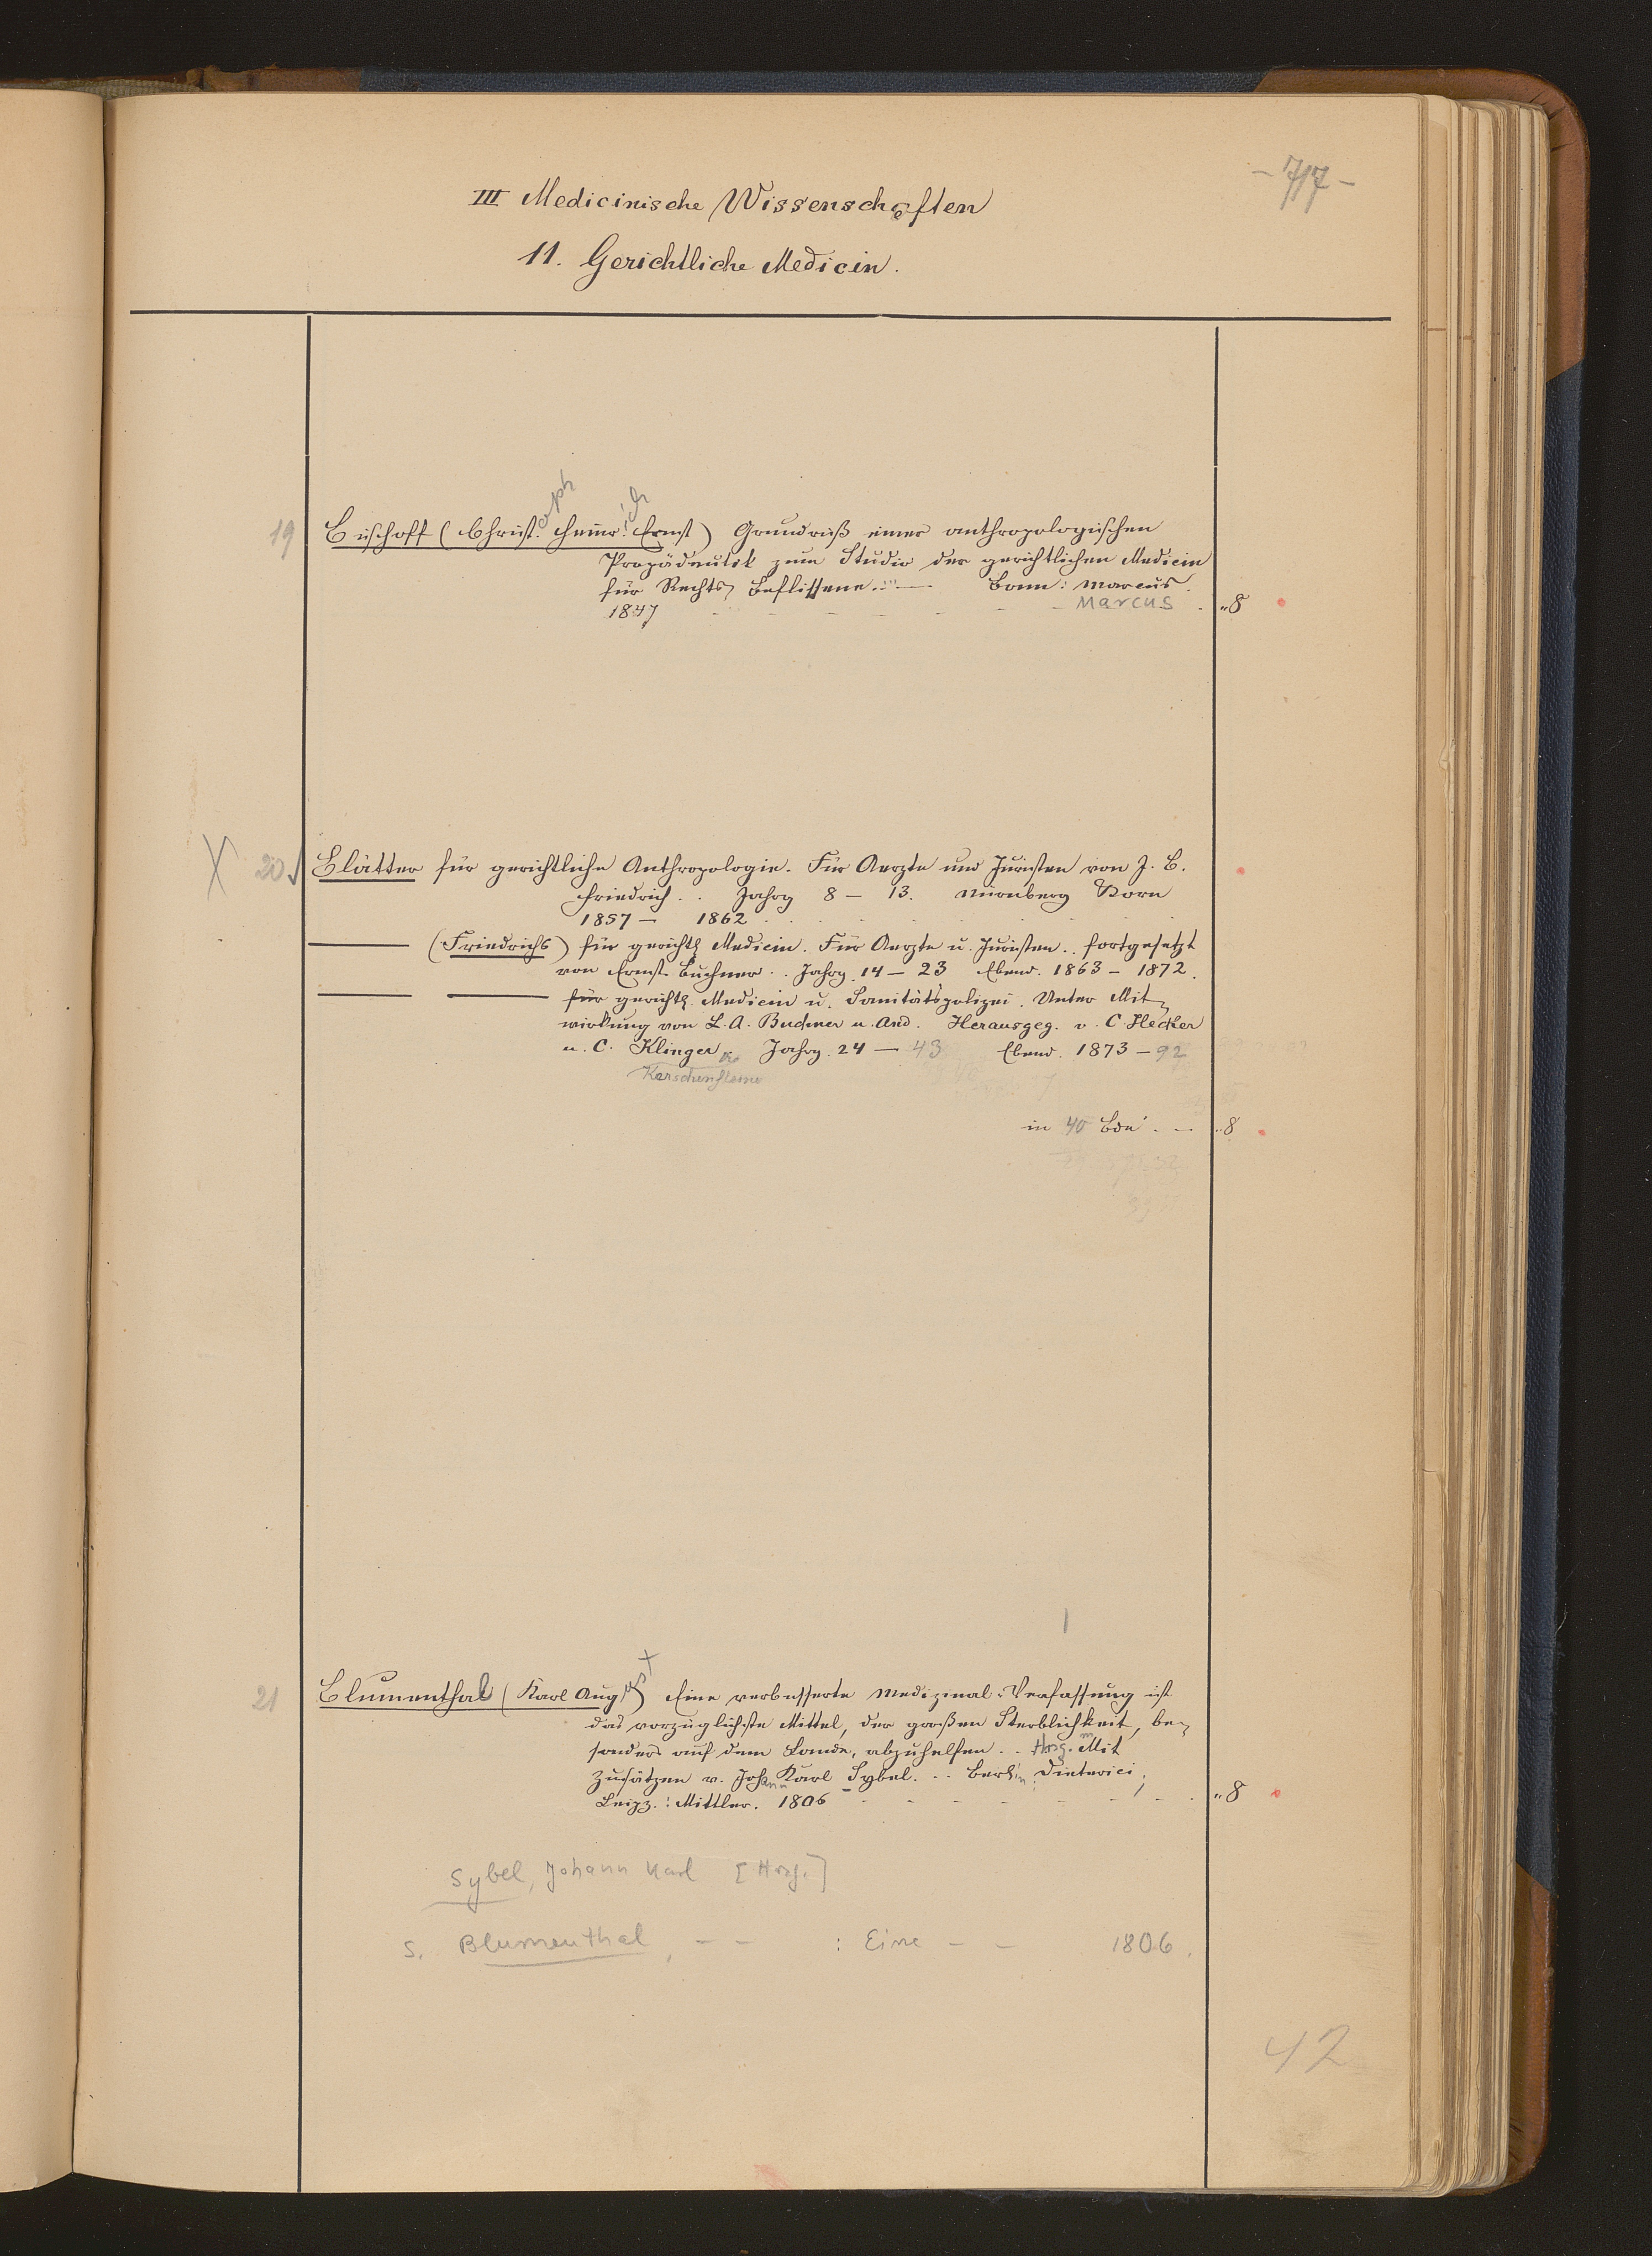 - 717 -
III Medicinische Wissenschaften
11. Gerichtliche Medicin.
19 Bischoff (Christ.oph Heinr.ich Ernst) Grundriß einer anthropologischen
Propädeutik zum Studio der gerichtlichen Medicin
für Rechts-Beflissene... — Bonn: Marcus.
1847 - - - - - - - Marcus . "8
X 20 Blätter für gerichtliche Anthropologie. Für Aerzte und Juristen von J. B.
Friedrich .. Jahrg 8 — 13. Nürnberg Korn
1857 — 1862
——— (Friedrichs) für gerichtl. Medicin. Für Aerzte u. Juristen.. fortgesetzt
von Ernst Buchner .. Jahrg. 14 — 23 Ebend. 1863 — 1872.
——— ——— für gerichtl. Medicin u. Sanitätspolizei. Unter Mit-
wirkung von L. A. Buchner u. And. Herausgeg. v. C. Hecker
u. C. Klinger Jahrg. 24 — 43 Ebend. 1873 — 92
Kerschensteiner
in 40 Bde . — "8
21 Blumenthal (Karl August) Eine verbesserte Medizinal-Verfassung ist
das vorzüglichste Mittel, der großen Sterblichkeit, be-
sonders auf dem Lande, abzuhelfen .. Hrsg. m Mit
Zusätzen v. Johann Karl Sybel. .. Berlin: Dieterici;
Leipz.: Mittler. 1806 - - - - - - - "8
Sybel, Johann Karl [Hrsg.]
s. Blumenthal, - - : Eine - - 1806.
42